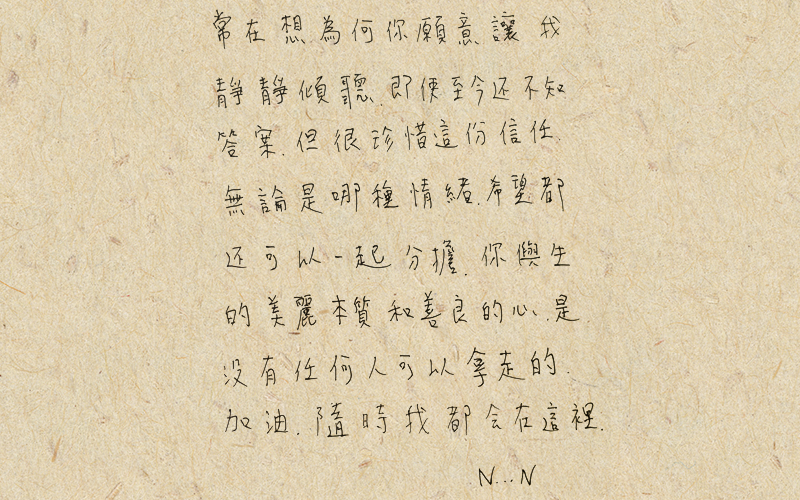 常在想為何你願意讓我
靜靜傾聽.即使至今还不知
答案.但很珍惜這份信任.
無論是哪種情緒.希望都
还可以一起分擔.你與生
的美麗本質和善良的心.是
没有任何人可以拿走的.
加油.隨時我都会在這裡.
N...N